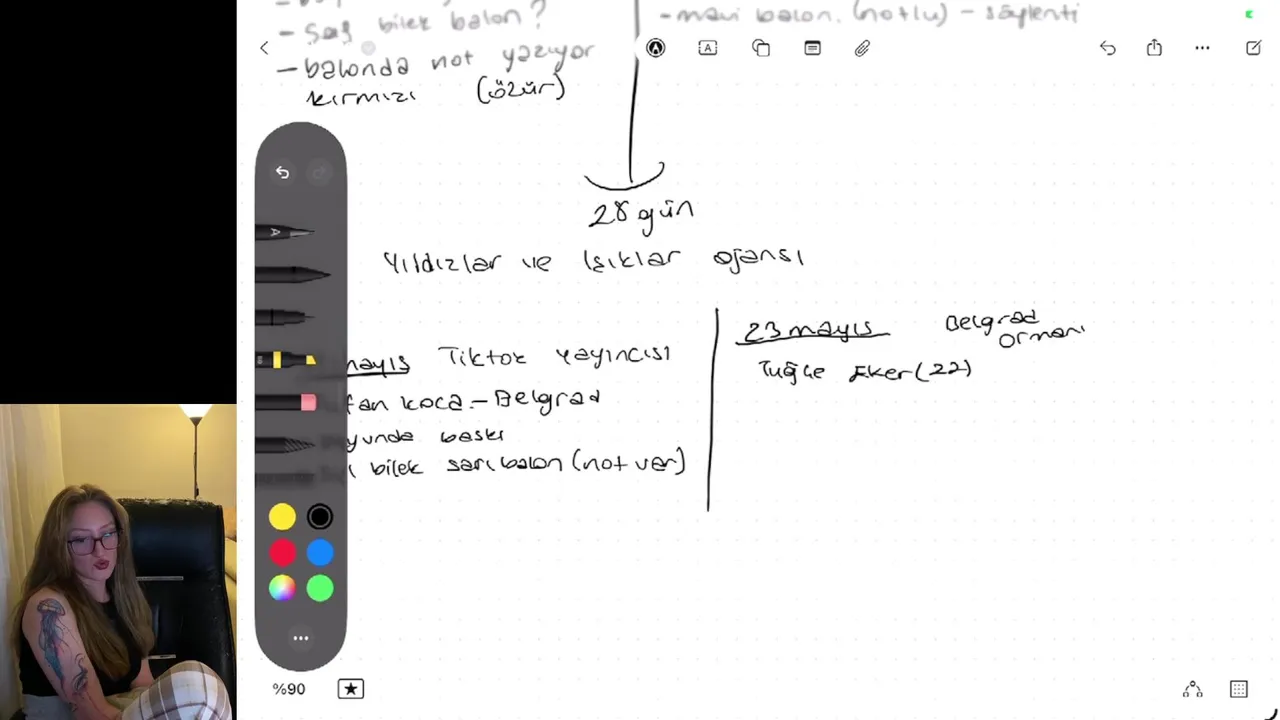 - Sağ bilek balon?
- balonda not yazıyor
kırmızı (özür)
- mavi balon. (notlu) - söylenti
28 gün
Yıldızlar ve Işıklar ajansı
mayıs Tiktok yayıncısı
fan koca - Belgrad
yunda baskı
bilek sarı balon (not var)
23 mayıs Belgrad
Ormanı
Tuğçe Eker (22)
%90